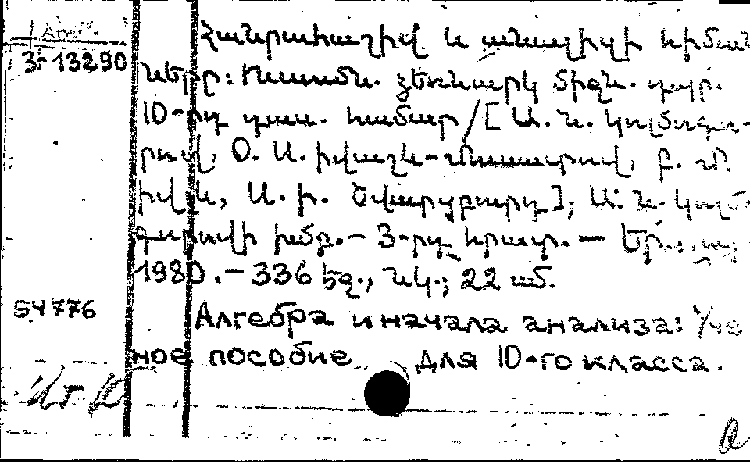 Հանրահաշիվ և անալիզի հիման
3-13290
ներ: Ուսումն. ձեռնարկ միջն. դպր.
10-րդ դաս. համար /[ Ա. Ն. Կոլմոգո-
րով, Օ. Ս. Իվաշև-Մուսատով, Բ. Մ.
Իվլև, Ս. Ի. Շվարցբուրդ]; Ա. Ն. Կոլմ
գորովի խմբ.– 3-րդ հրատ. —
1980.– 336 էջ., նկ.; 22 սմ.
54776
Алгебра и начала анализа: Уче
ное пособие для 10-го класса.